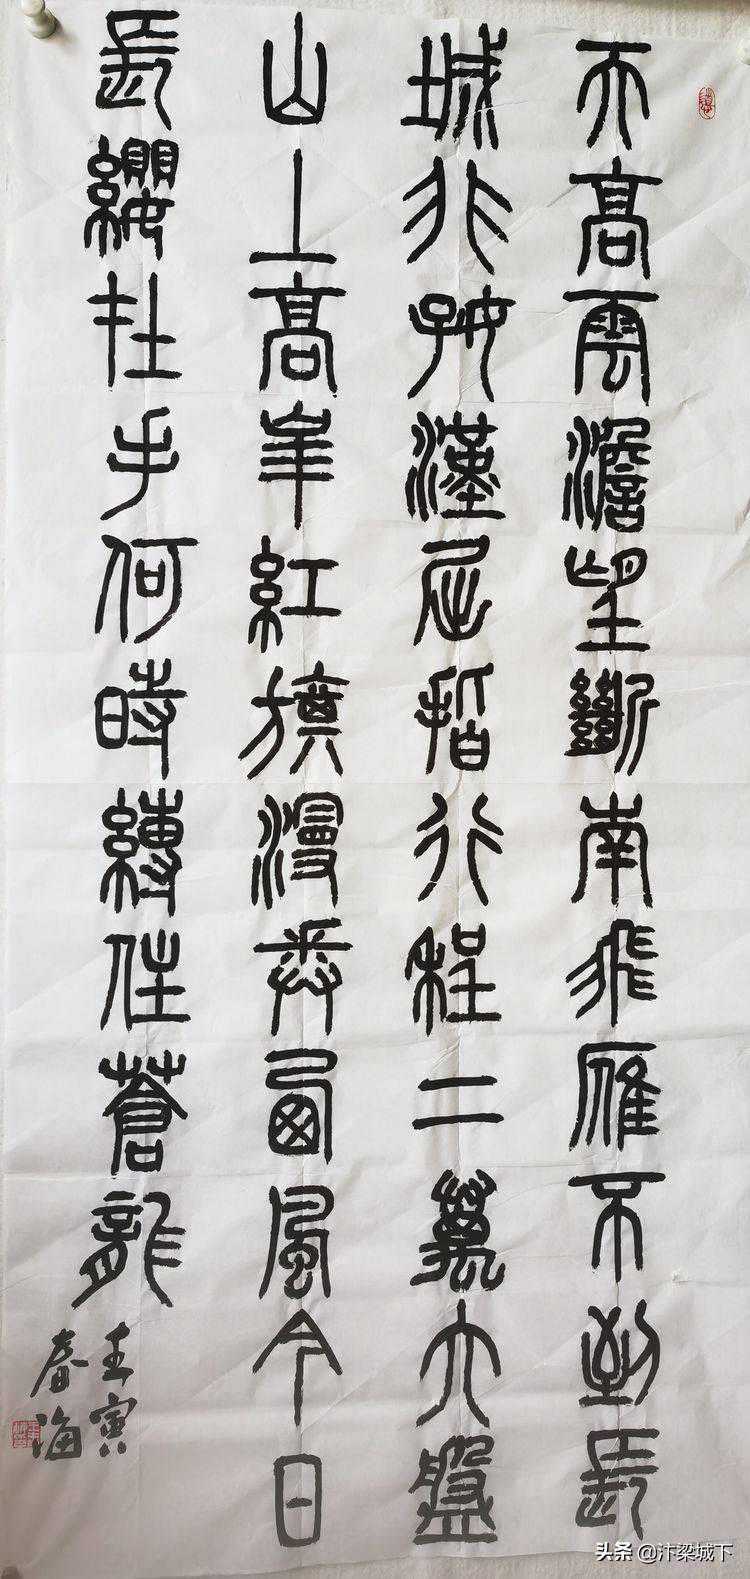 天高雲澹望斷南飛雁不到長
城非好漢屈指行程二萬六盤
山上高峯紅旗漫卷西風今日
長纓在手何時縛住蒼龍
壬寅
春海
头条 @汴梁城下